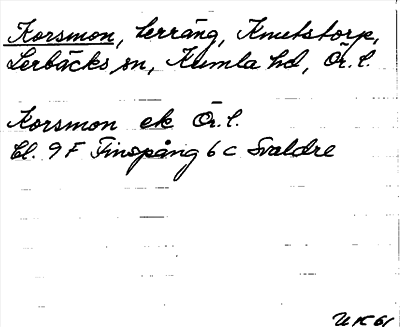 Korsmon, terräng, Knutstorp,
Lerbäcks sn, Kumla hd, Ör. l.
Korsmon ek Ör. l.
Bl. 9 F Finspång 6 c Svaldre
UK 61